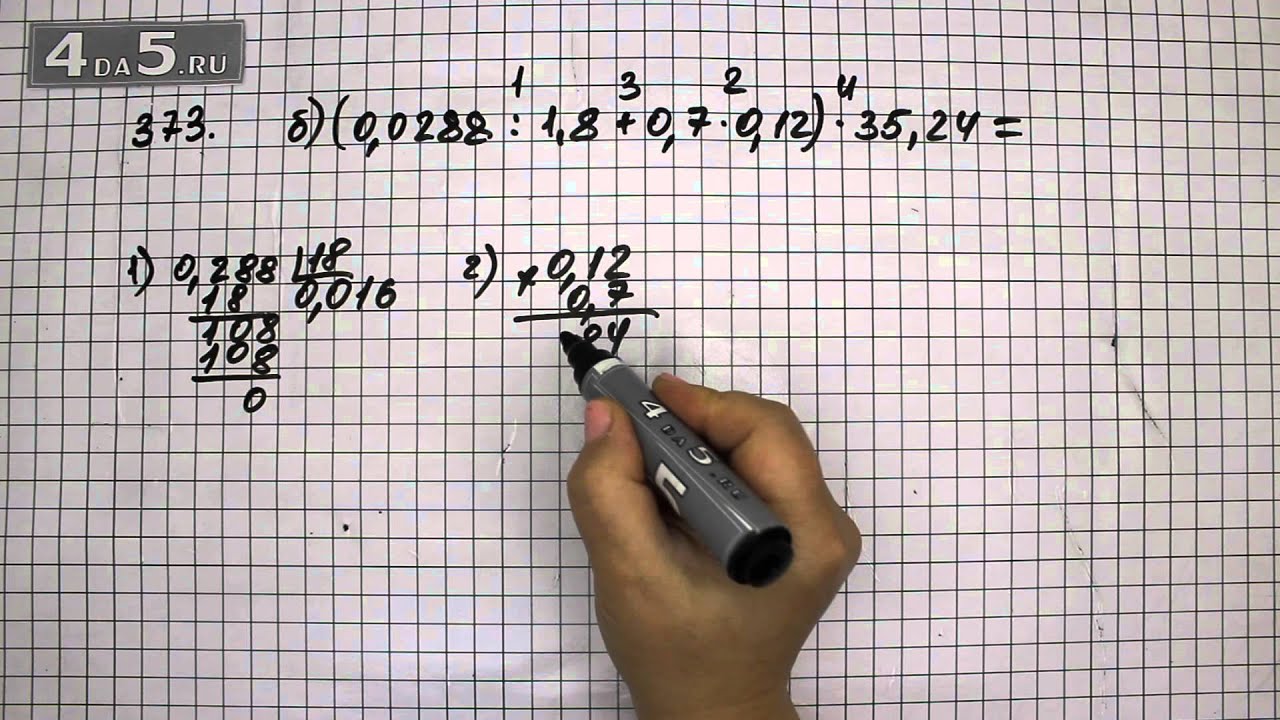 4DA5.RU
373. б) (0,0288 : 1,8 + 0,7 · 0,12) · 35,24 =
1 3 2 4
1) 0,288 | 18
18 0,016
108
108
0
2) × 0,12
0,7
84
4DA5.RU